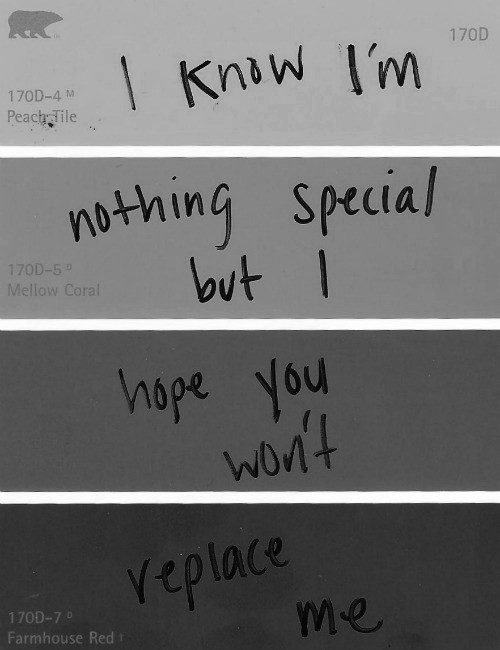 170D
I know I'm
170D-4 M
Peach Tile
nothing special
but I
170D-5 D
Mellow Coral
hope you
won't
replace
me
170D-7 D
Farmhouse Red